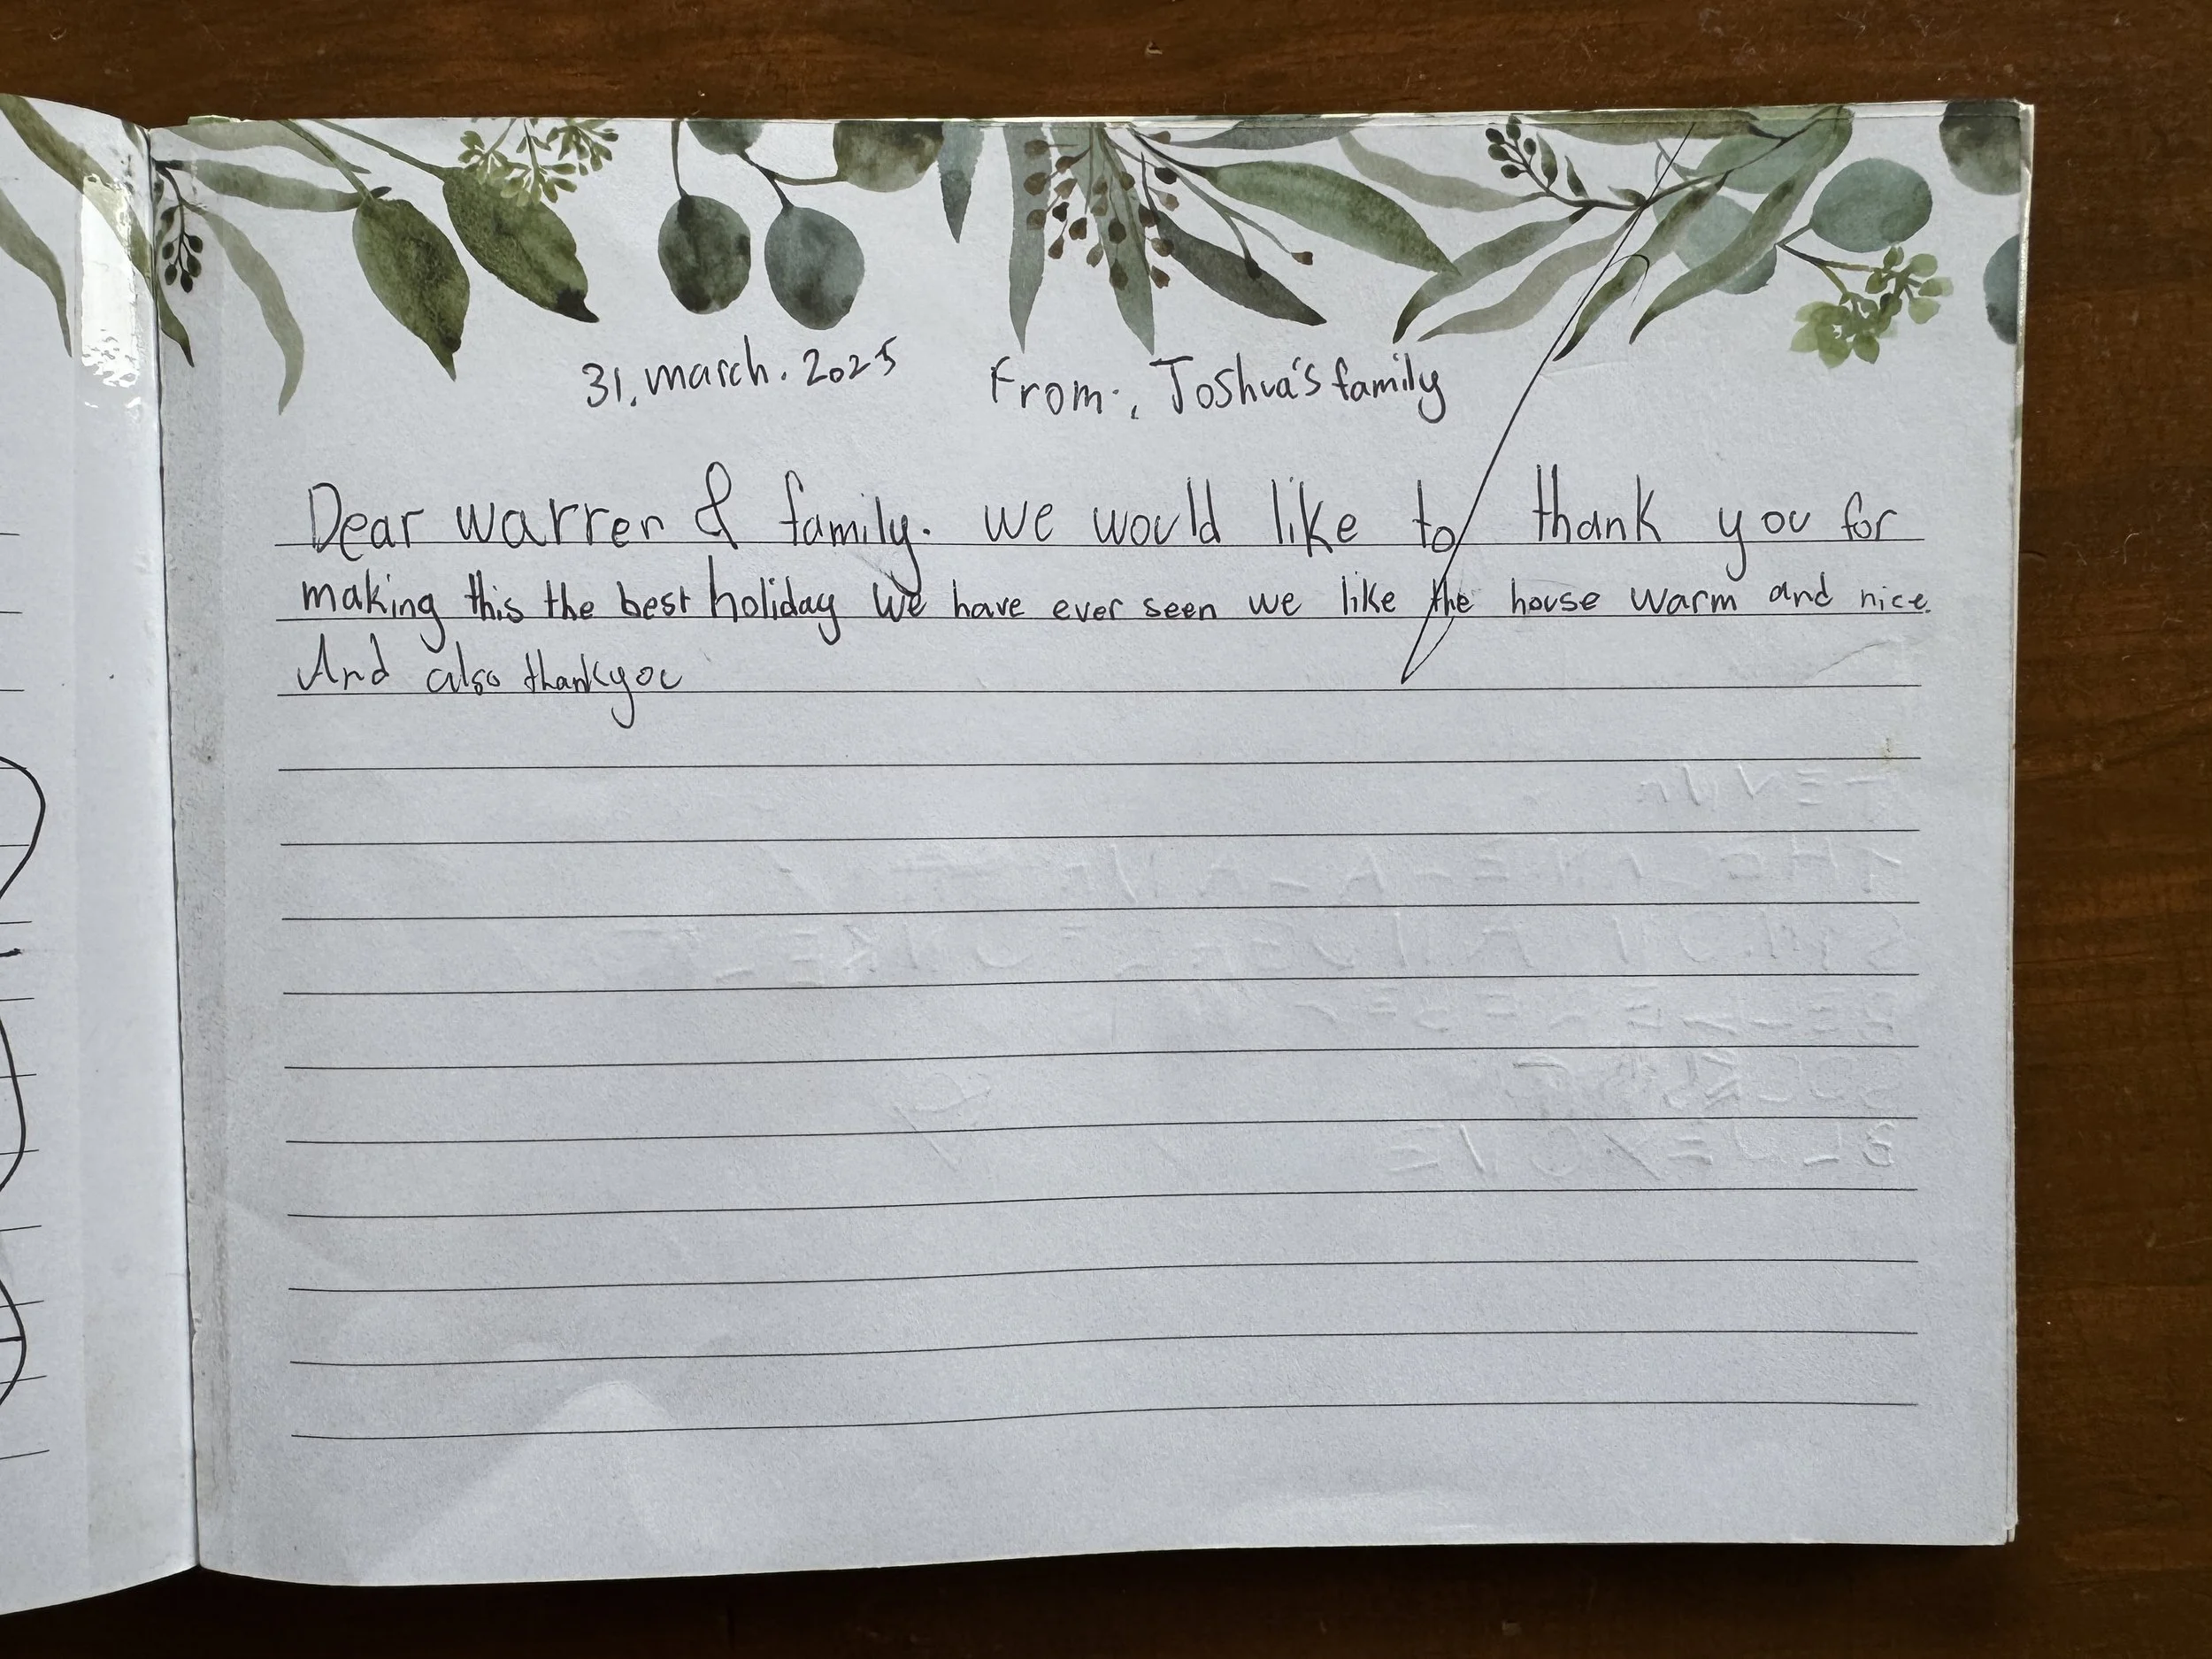 31. march. 2025 From:, Joshua's family
Dear warren & family. we would like to thank you for
making this the best holiday we have ever seen we like the house warm and nice.
And also thankyou